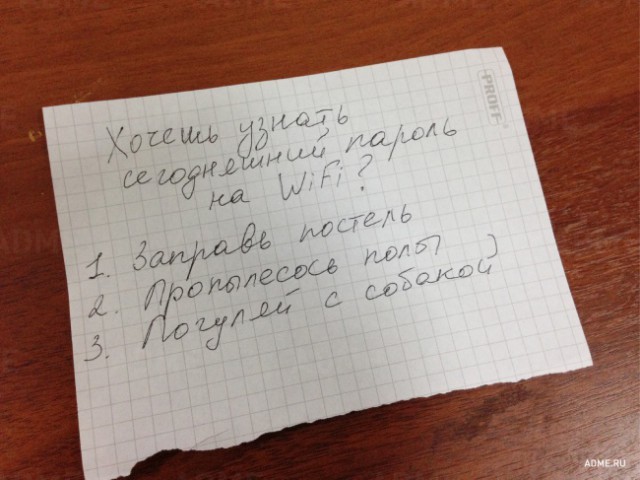 PROFF
Хочешь узнать
сегодняшний пароль
на WiFi?
1. Заправь постель
2. Пропылесось полы
3. Погуляй с собакой
ADME.RU